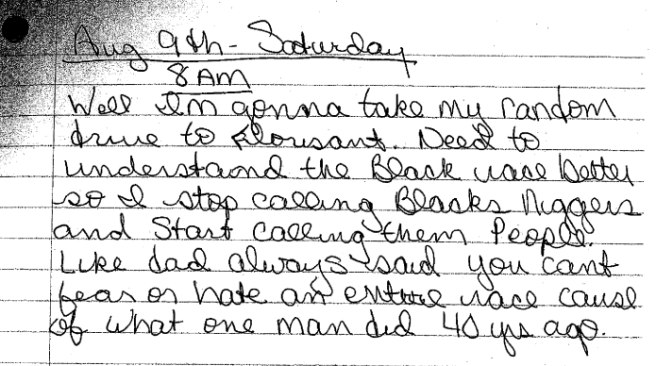 Aug 9th - Saturday
8 AM
Well Im gonna take my random
drive to Florisant. Need to
understaand the Black race better
so I stop calling Blacks Niggers
and Start calling them People.
Like dad always said you cant
fear or hate an entire race cause
of what one man did 40 yrs ago.